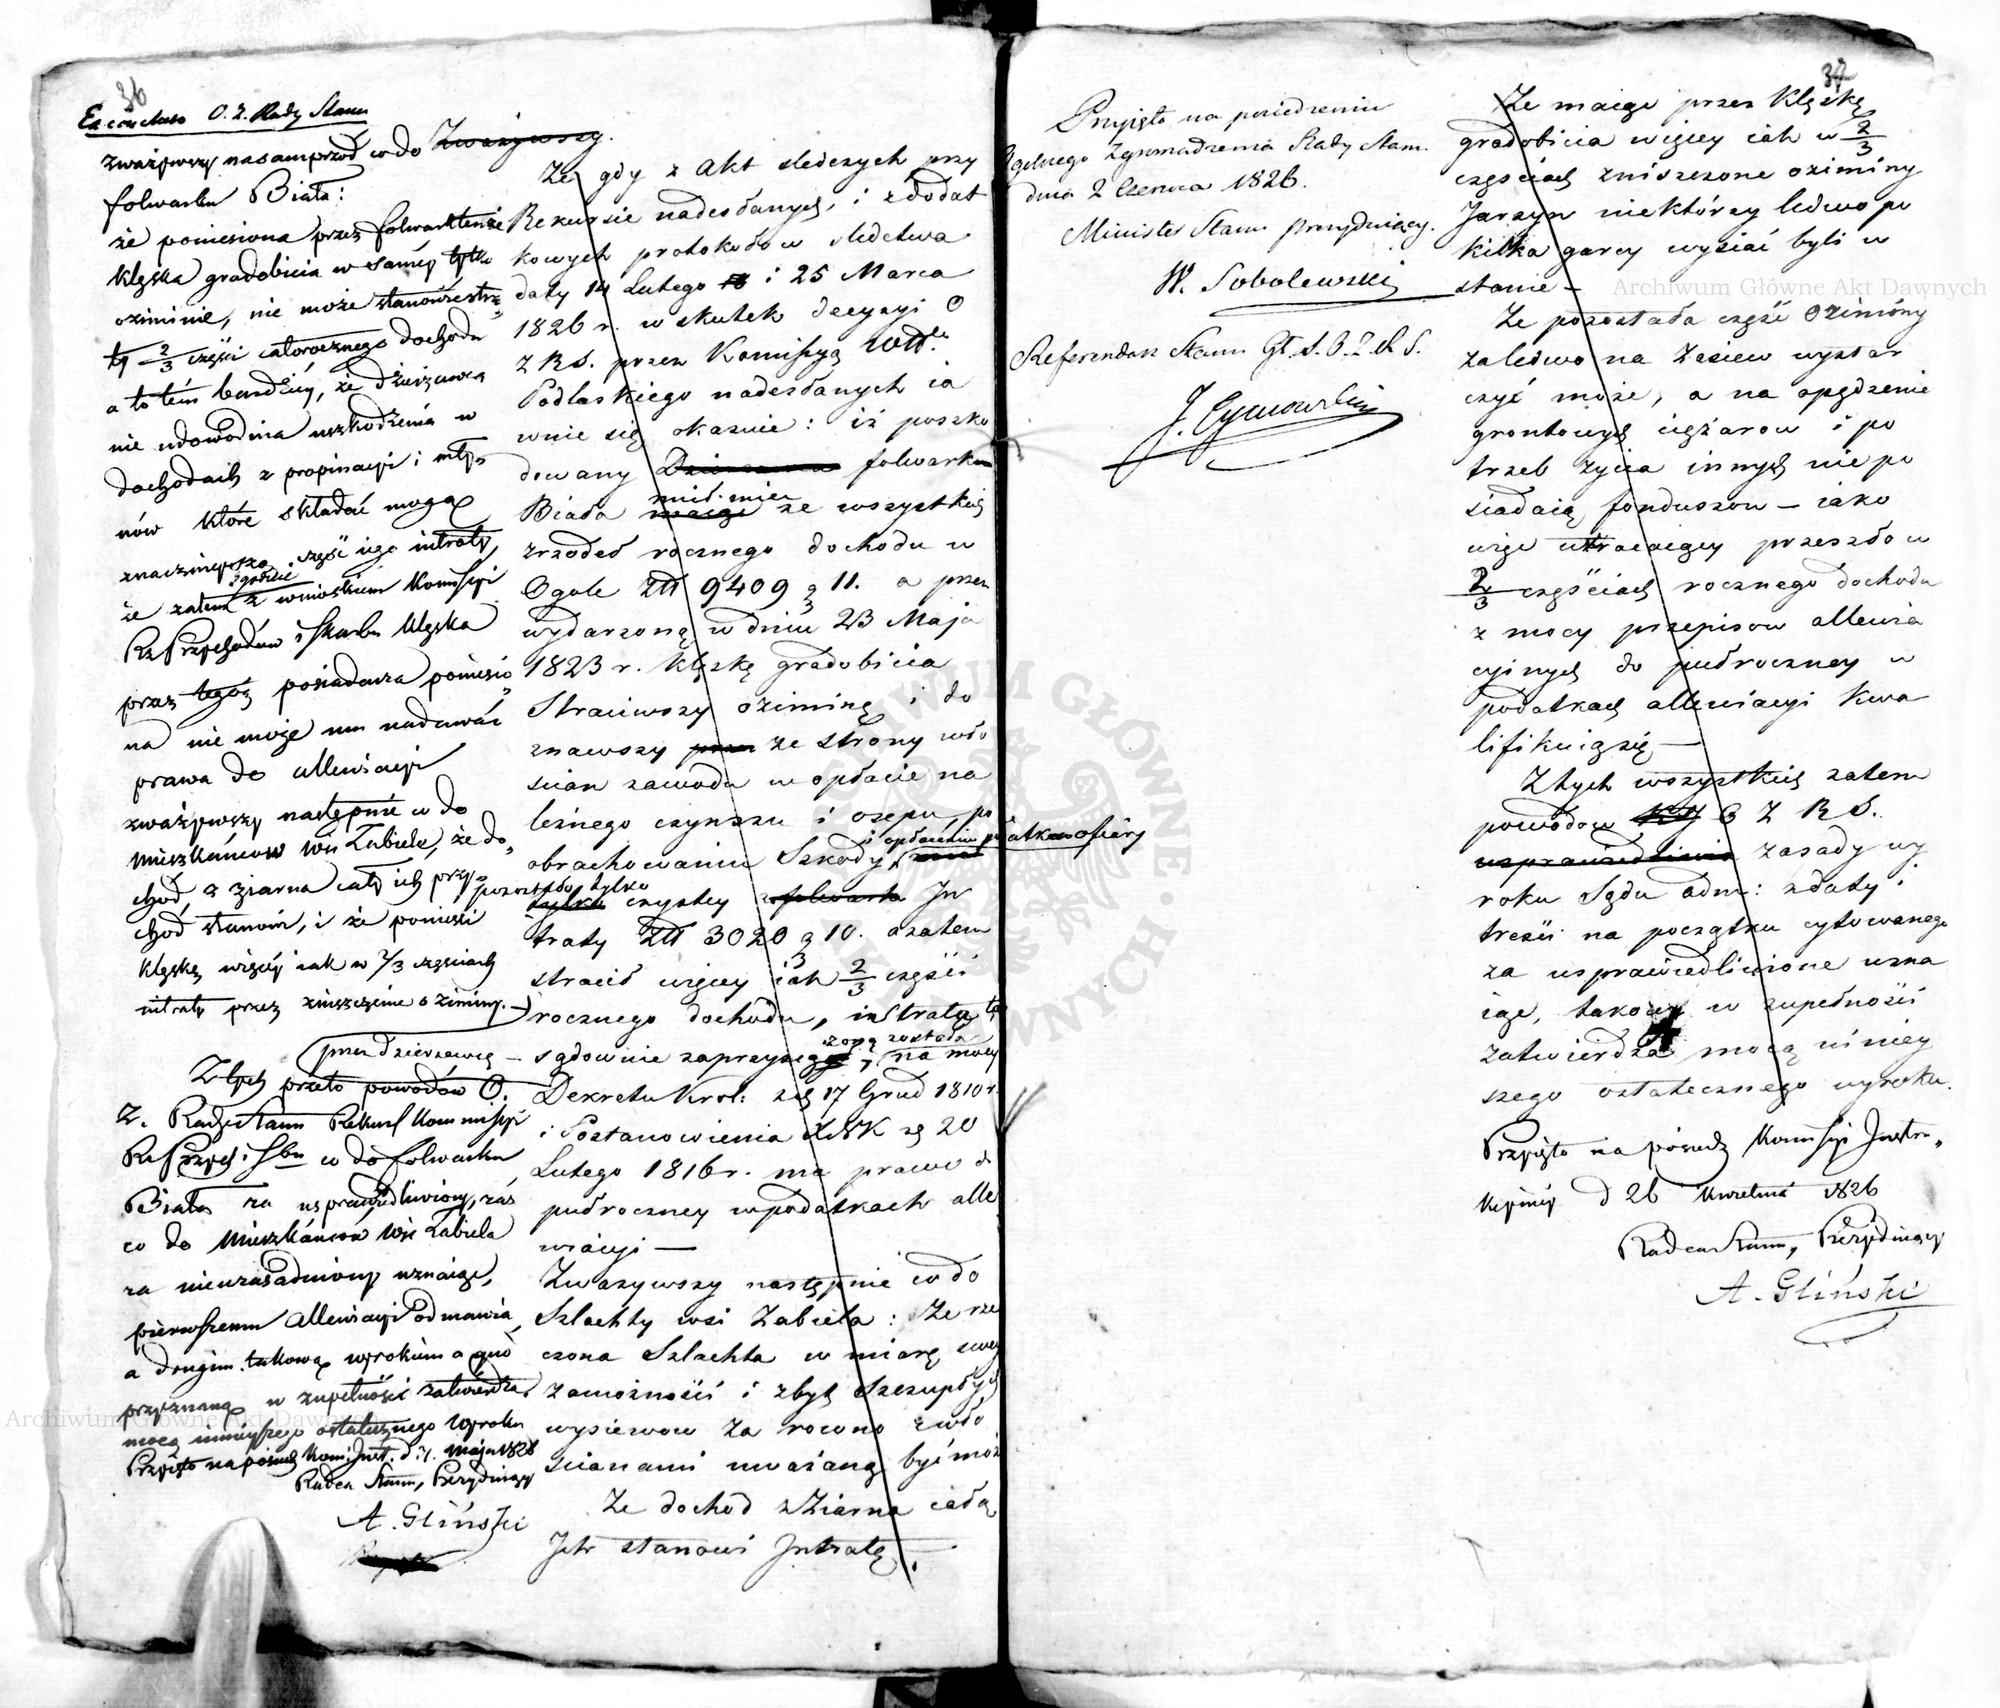 36
Ex consulto O. Z. Rady Stanu
zważywszy nasamprzód co do
folwarku Biała:
że poniesiona przez folwark tenże
klęska gradobicia w saméy tylko
oziminie, nie może stanowić straty
2/3 części całorocznego dochodu
a to tém bardziéy, że dzierżawca
nie udowodnia uszkodzenia w
dochodach z propinacyi i mły-
nów które składać mogą
znacznieyszą część iego intraty,
że zatem zgodnie z wnioskiem Kommissyi
Rz Przychodów i Skarbu klęska
przez tegoż posiadacza poniesio-
na nie może mu nadawać
prawa do allewiacyi
zważywszy następnie co do
Mieszkańców wsi Zabiela, że do-
chód z ziarna cały ich przy-
chód stanowi, i że ponieśli
klęskę więcéy iak w 2/3 częściach
intraty przez zniszczenie oziminy.
Z tych przeto powodów O.
Z. Rady Stanu Rekurs Kommissyi
Rz Przych i Sbu co do folwarku
Biała za usprawiedliwiony, zaś
co do Mieszkańców wsi Zabiela
za nieuzasadniony uznaiąc,
pierwszemu allewiacyi odmawia,
a drugim takową wyrokiem a quo
przyznaną w zupełności zatwierdza,
mocą ninieyszego ostatecznego wyroku
Przyięto na posiedz Kom: Inst. d. 7. Maja 1826
Radca Stanu, Prezydujący
A. Gliński
Zważywszy.
Że gdy z Akt śledczych przy
Rekursie nadesłanych, i z dodat
kowych protokołów śledztwa
daty 14 Lutego i 25 Marca
1826 r. w skutek decyzyi O
Z R S. przez Komissyą Wdtwa
Podlaskiego nadesłanych ia
wnie się okazuie: iż poszko
dowany Dzierzawca folwarku
Biała miał mieć ze wszystkich
zrzodeł rocznego dochodu w
Ogole Złł 9409 g 11. a przez
wydarzoną w dniu 23 Maja
1823 r. klęskę gradobicia
Straciwszy oziminę i do
znawszy ze strony wło
ścian zawodu w opłacie na
leżnego czynszu i osepu, po
obrachowaniu Szkody, i opłaceniu podatku ofiary
pozostało tylko czystey z folwarku In
traty Złł 3020 g 10. a zatem
stracił więcey iak 2/3 części
rocznego dochodu, intratę tę
przez dzierzawcę – sądownie zaprzysiężoną została, na mocy
Dekretu Król: z dnia 17 Grud 1810 r.
i Postanowienia XNK z dnia 20
Lutego 1816 r. ma prawo do
pułroczney w podatkach alle
wiacyi —
Zwazywszy następnie co do
Szlachty wsi Zabiela: Że rze
czona Szlachta w miarę swey
zamożności i zbyt szczupłych
wysiewow za rowno z wło
ścianami uważaną być może
Że dochod z Ziarna całą
Ich stanowi Intratę.
37
Przyięto na posiedzeniu
Ogolnego Zgromadzenia Rady Stanu.
dnia 2 Czerwca 1826.
Minister Stanu Prezydujący.
W. Sobolewski
Referendarz Stanu Gł. S. O. Z. R. S.
Że maiąc przez Klęskę
gradobicia więcey iak w 2/3
częściach zniszczone oziminy
Jarzyn niektórzy ledwo po
kilka garcy wysiać byli w
stanie –
Że pozostała część Oziminy
zaledwo na zasiew wystar
czyć może, a na opędzenie
grontowych ciężarow i po
trzeb życia innych nie po
siadaią funduszow – iako
więc utracaiący przeszło w
2/3 częściach rocznego dochodu
z mocy przepisow allewia
cyinych do pułroczney w
podatkach allewiacyi kwa
lifikuią się —
Z tych wszystkich zatem
powodow O Z R S.
usprawiedliwia zasady wy
roku Sądu adm: z daty i
treści na początku cytowanego
za usprawiedliwione uzna
iąc, takowy w zupełności
zatwierdza mocą niniey
szego ostatecznego wyroku.
Przyięto na posiedz Komissyi Instru-
kcyinéy d 26 Kwietnia 1826
Radca Stanu, Prezydujący
A. Gliński
Archiwum Główne Akt Dawnych
Archiwum Główne Akt Dawnych
ARCHIWUM GŁÓWNE AKT DAWNYCH